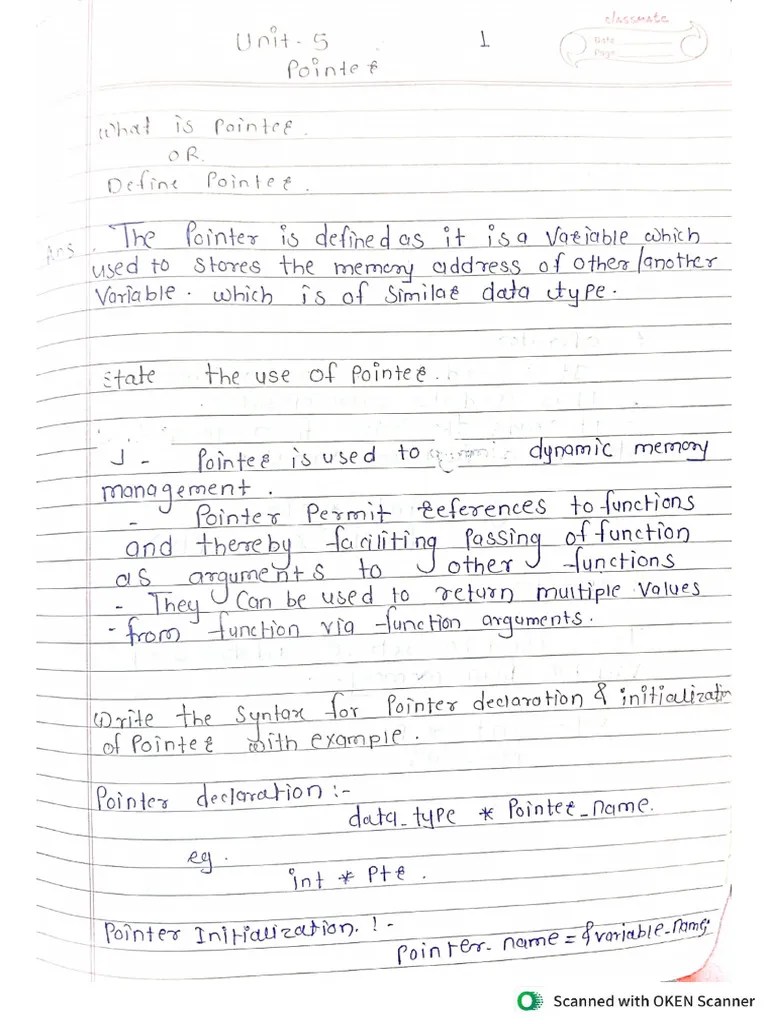 classmate
Date
Page
Unit-5 1
Pointer
What is Pointer.
OR.
Define Pointer.
Ans. The Pointer is defined as it is a Variable which
used to stores the memory address of other/another
Variable. which is of similar data type.
State the use of Pointer..
- Pointer is used to dynamic memory
management.
- Pointer Permit references to functions
and thereby faciliting Passing of function
as arguments to other functions
- They Can be used to return multiple values
- from function via function arguments.
Write the Syntax for Pointer declaration & initializatin
of Pointer with example.
Pointer declaration :-
data_type * Pointer_name.
eg.
int * Ptr.
Pointer Initialization. ! -
Pointer_name = &variable_name;
Scanned with OKEN Scanner